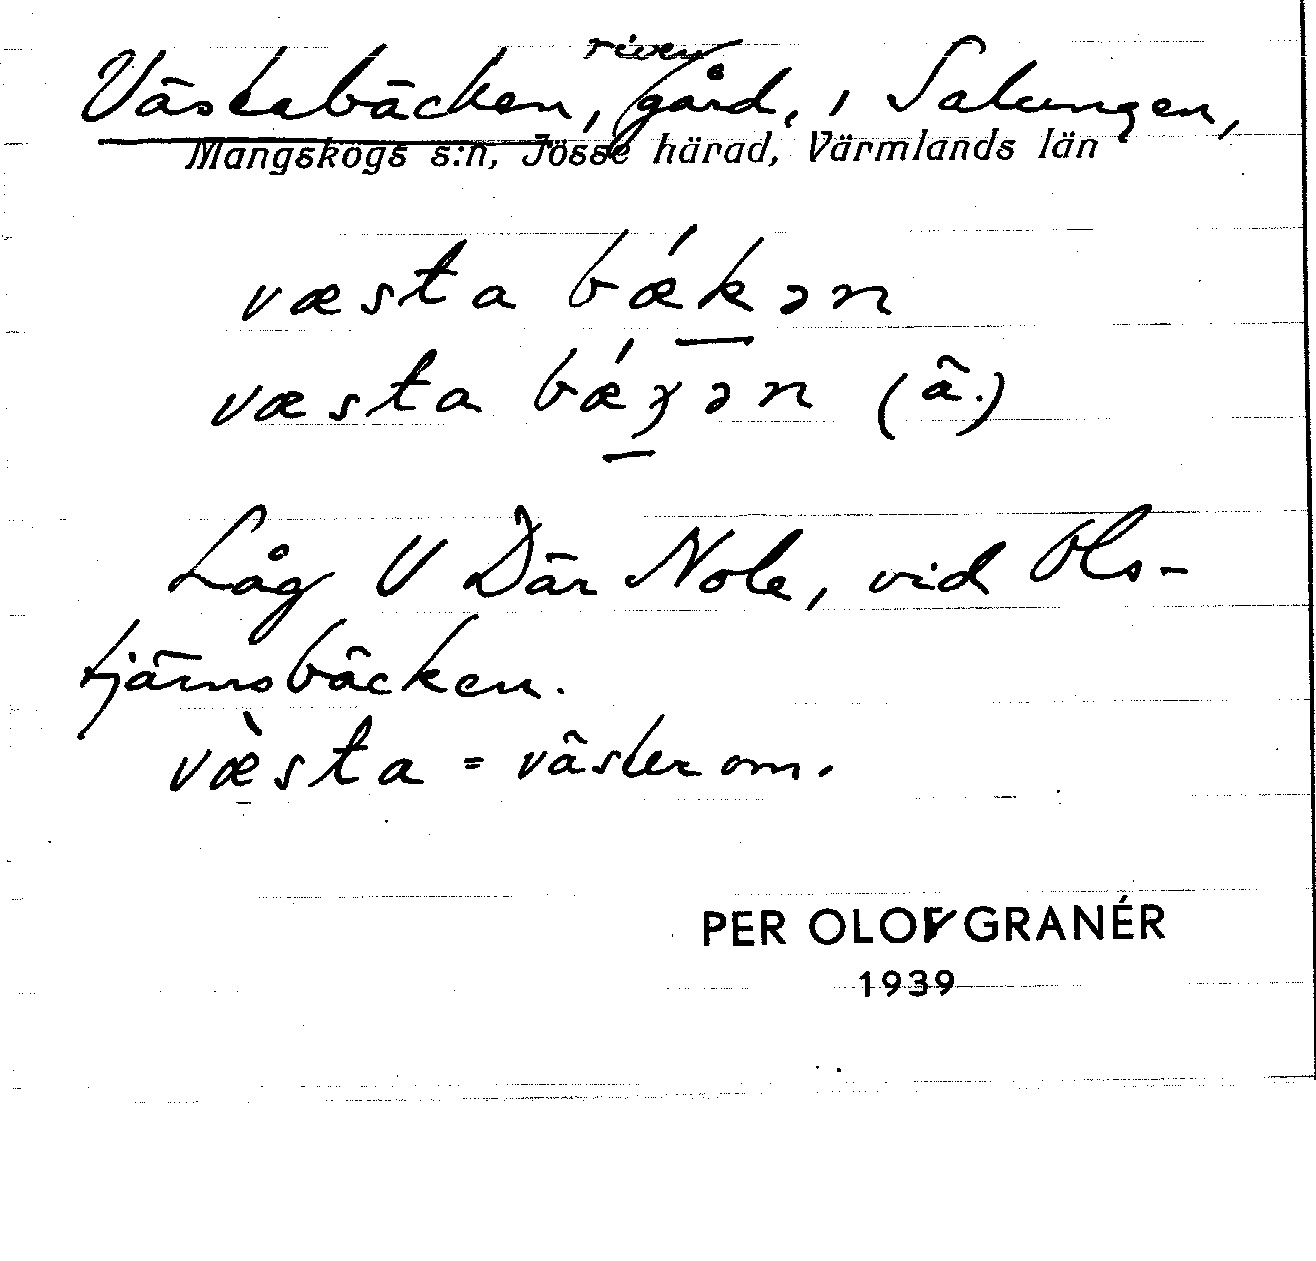 Västabäcken, riven gård, i Salungen,
Mangskogs s:n, Jösse härad, Värmlands län
væsta bǽkən
væsta bǽɣən (ä.)
Låg V Där Nole, vid Ols-
tjärnsbäcken.
væ̀sta = väster om.
PER OLOF GRANÉR
1939